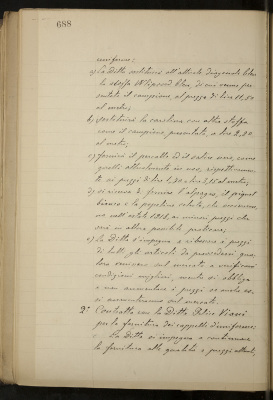 688
uniforme:
a) La Ditta sostituirà all'attuale diagonale bleu
la stoffa Whipcord bleu, di cui venne pre-
sentato il campione, al prezzo di lire 11,50
al metro;
b) sostituirà la carolina con altra stoffa
come il campione presentato, a lire 2,20
al metro;
c) fornirà il percallo ed il satin uso, come
quelli attualmente in uso, rispettivamen-
te ai prezzi di lire 1,30 e lire 2,15 al metro;
d) si riserva di fornire l'alpagas, il piquet
bianco e la popeline celeste, che occorrono
no nell'estate 1915, ai minori prezzi che
sarà in allora possibile praticare;
e) La Ditta s'impegna a ribassare i prezzi
di tutti gli articoli da provvedersi qua-
lora venissero sul mercato a verificarsi
condizioni migliori, mentre si obbliga
a non aumentare i prezzi se anche es-
si aumentassero sul mercato.
2° Contratto con la Ditta Felice
per la fornitura dei cappelli d'uniforme:
La Ditta si impegna a continuare
la fornitura alle qualità e prezzi attuali,